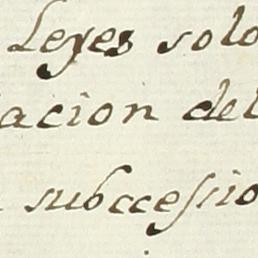 Leyes solo
acion del
subccessio